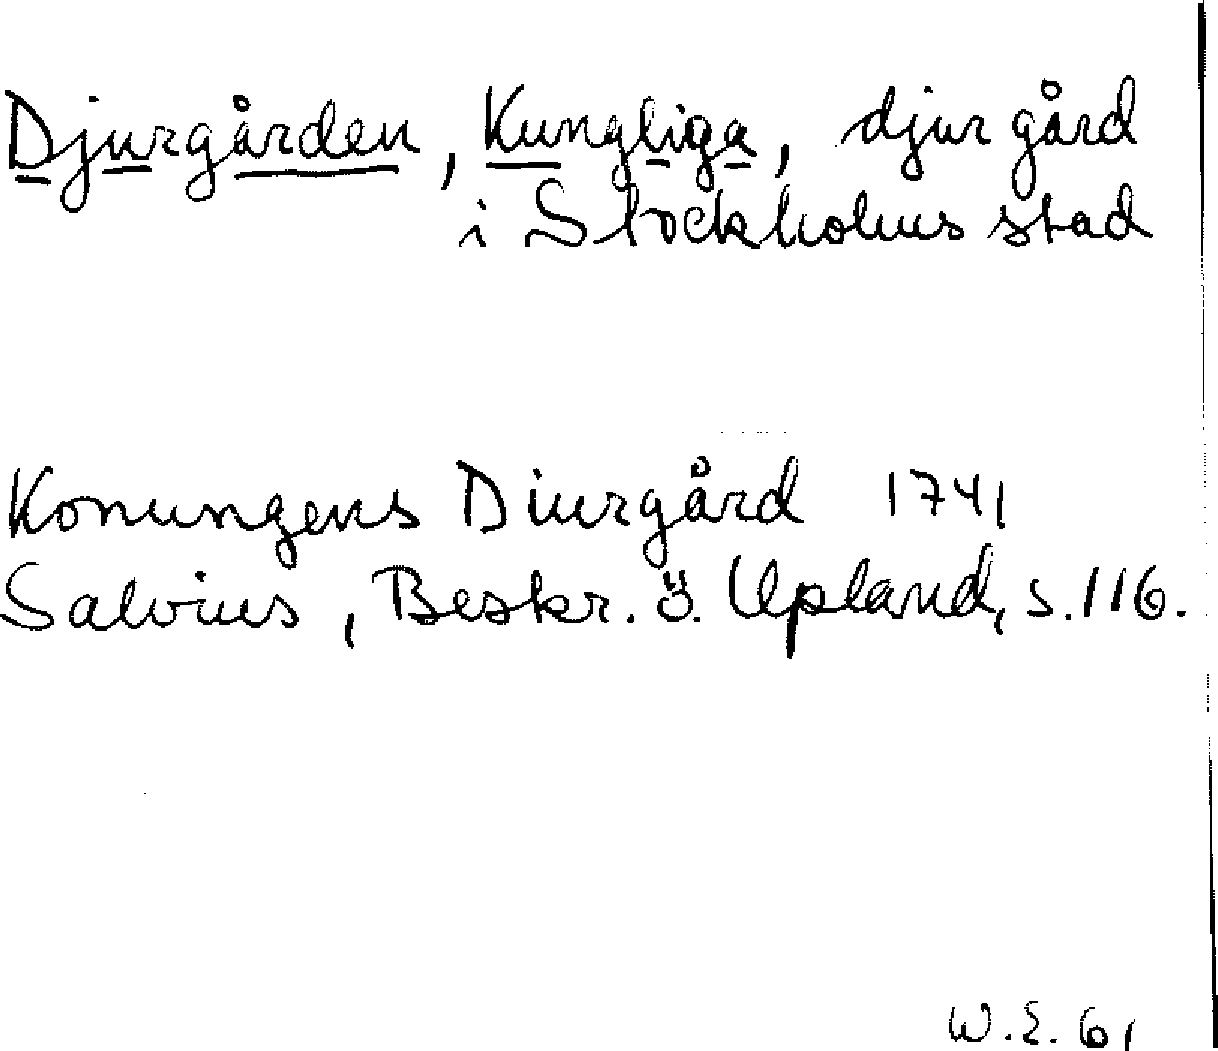 Djurgården, Kungliga, djurgård
i Stockholms stad
Konungens Diurgård 1741
Salvius, Beskr. ö. Upland, s. 116.
W.E. 61